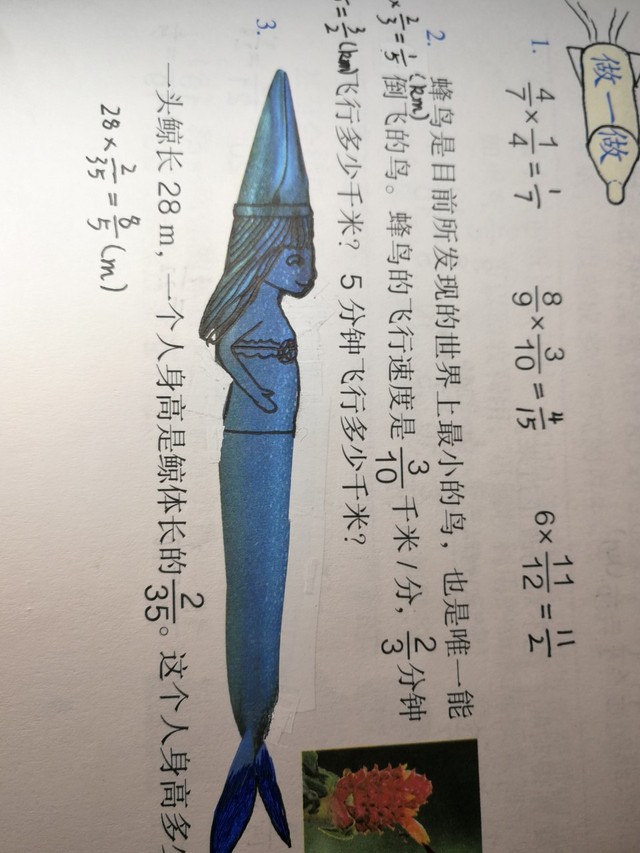 做一做
1. 4/7×1/4=1/7 8/9×3/10=4/15 6×11/12=11/2
2. 蜂鸟是目前所发现的世界上最小的鸟，也是唯一能
×2/3=1/5(km) 倒飞的鸟。蜂鸟的飞行速度是3/10千米/分，2/3分钟
=3/2(km) 飞行多少千米？5分钟飞行多少千米？
3.
一头鲸长28 m，一个人身高是鲸体长的2/35。这个人身高多
28×2/35=8/5(m)